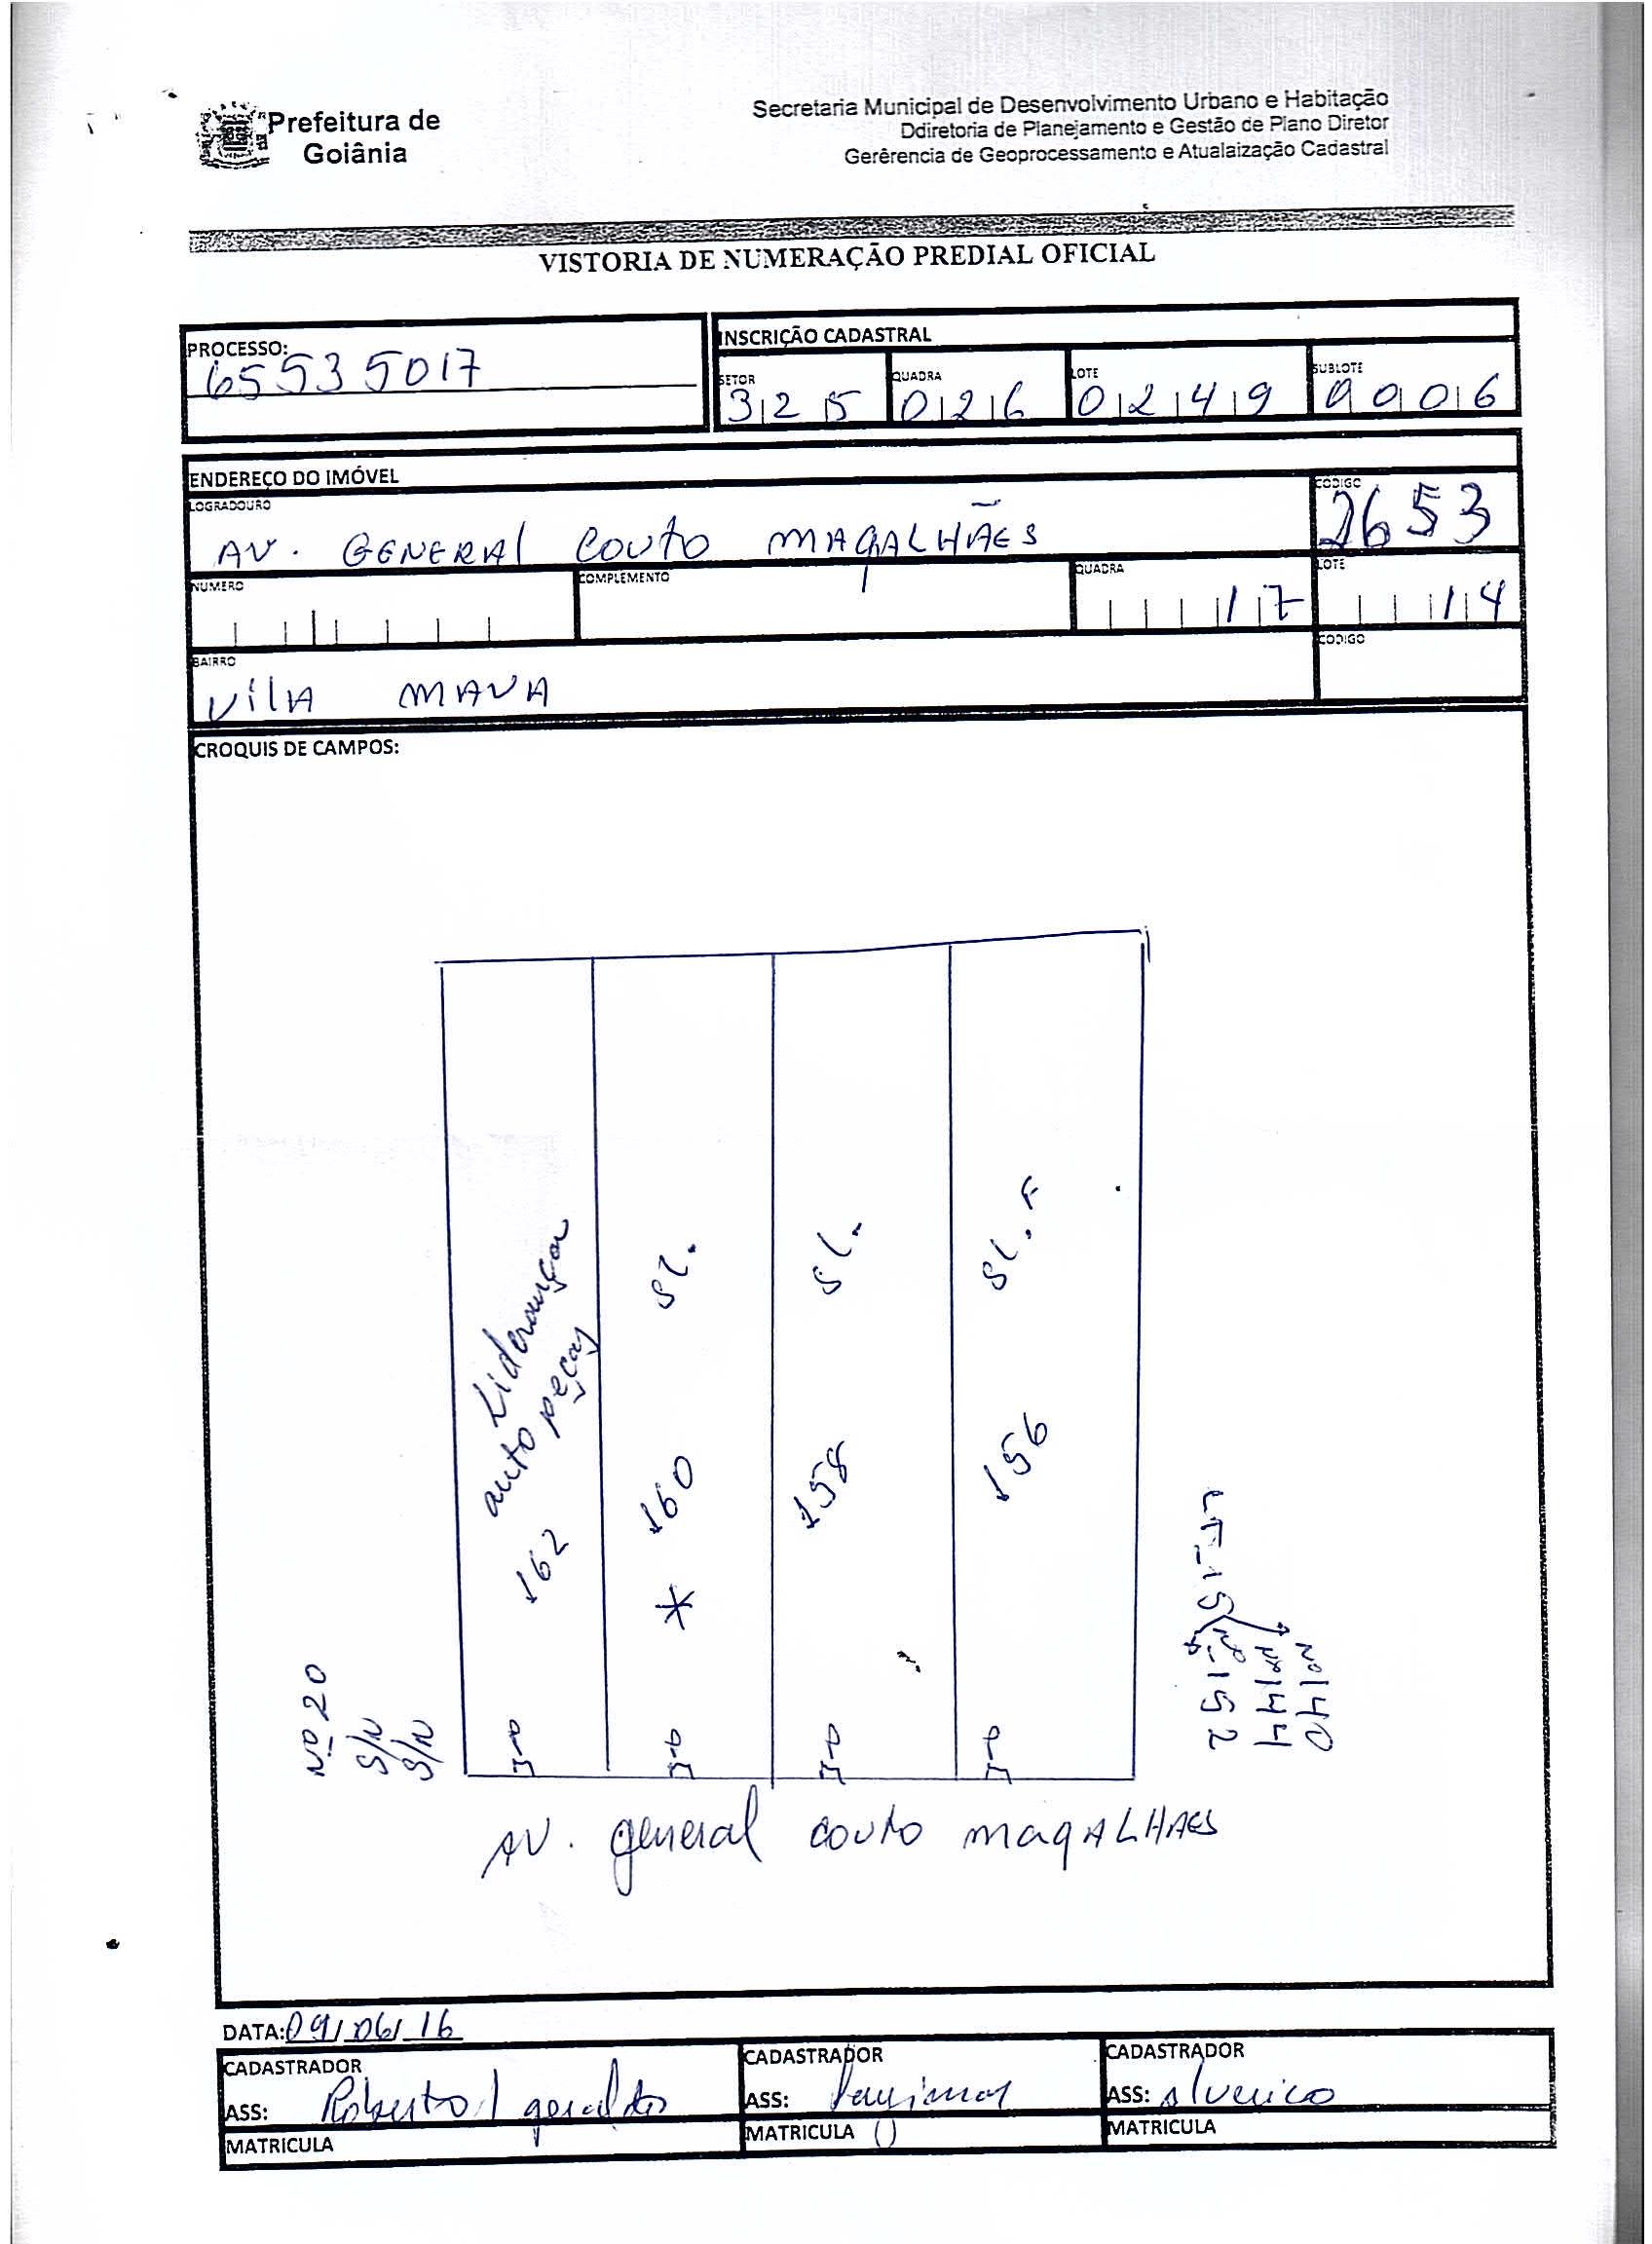 Prefeitura de
Goiânia
Secretaria Municipal de Desenvolvimento Urbano e Habitação
Ddiretoria de Planejamento e Gestão de Plano Diretor
Gerêrencia de Geoprocessamento e Atualaização Cadastral
VISTORIA DE NUMERAÇÃO PREDIAL OFICIAL
PROCESSO:
65535017
INSCRIÇÃO CADASTRAL
SETOR QUADRA LOTE SUBLOTE
325 026 0249 0006
ENDEREÇO DO IMÓVEL
LOGRADOURO CODIGO
AV. GENERAl COUTO MAGALHÃES 2653
NUMERO COMPLEMENTO QUADRA LOTE
17 14
BAIRRO CODIGO
VilA MAUA
CROQUIS DE CAMPOS:
auto peças
162
SL.
160
*
SL.
158
SL. F
156
Nº 20
S/N
S/N
LT-15
Nº-152
Nº144
Nº140
AV. general couto magALHAES
DATA: 09/06/16
CADASTRADOR CADASTRADOR CADASTRADOR
ASS: Roberto / geraldo ASS: ASS: alverico
MATRICULA MATRICULA MATRICULA